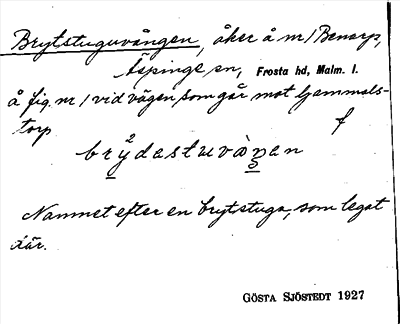 Brytstuguvången, åker å nr 1 Benarp,
Äspinge sn, Frosta hd, Malm. l.
å fig. nr 1 vid vägen, som går mot Gammals-
torp
f
brydastuvàŋen
Namnet efter en brytstuga, som legat
där.
GÖSTA SJÖSTEDT 1927